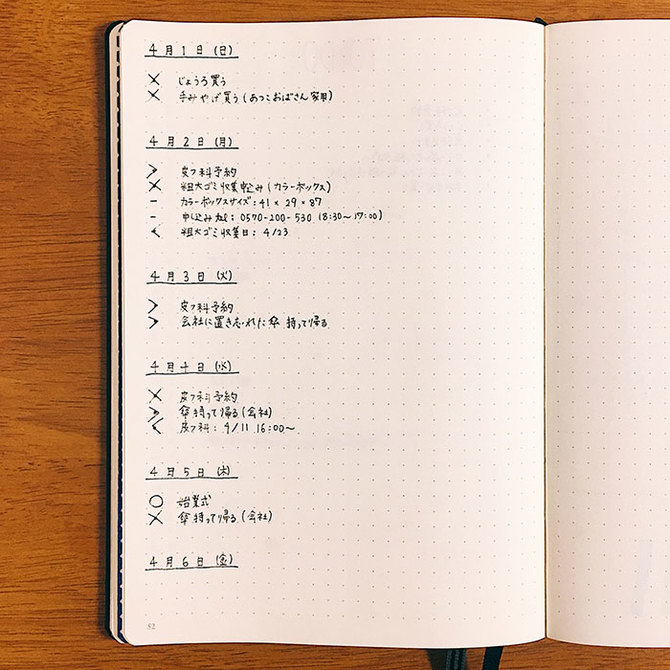 4月1日(日)
× じょうろ買う
× 手みやげ買う(あつこおばさん家用)
4月2日(月)
> 皮フ科予約
× 粗大ゴミ収集申込み(カラーボックス)
- カラーボックスサイズ:41×29×87
- 申し込みtel:0570-200-530(8:30~17:00)
< 粗大ゴミ収集日:4/23
4月3日(火)
> 皮フ科予約
> 会社に置き忘れた傘 持って帰る
4月4日(水)
× 皮フ科予約
> 傘持って帰る(会社)
< 皮フ科:4/11 16:00~
4月5日(木)
○ 始業式
× 傘持って帰る(会社)
4月6日(金)
52